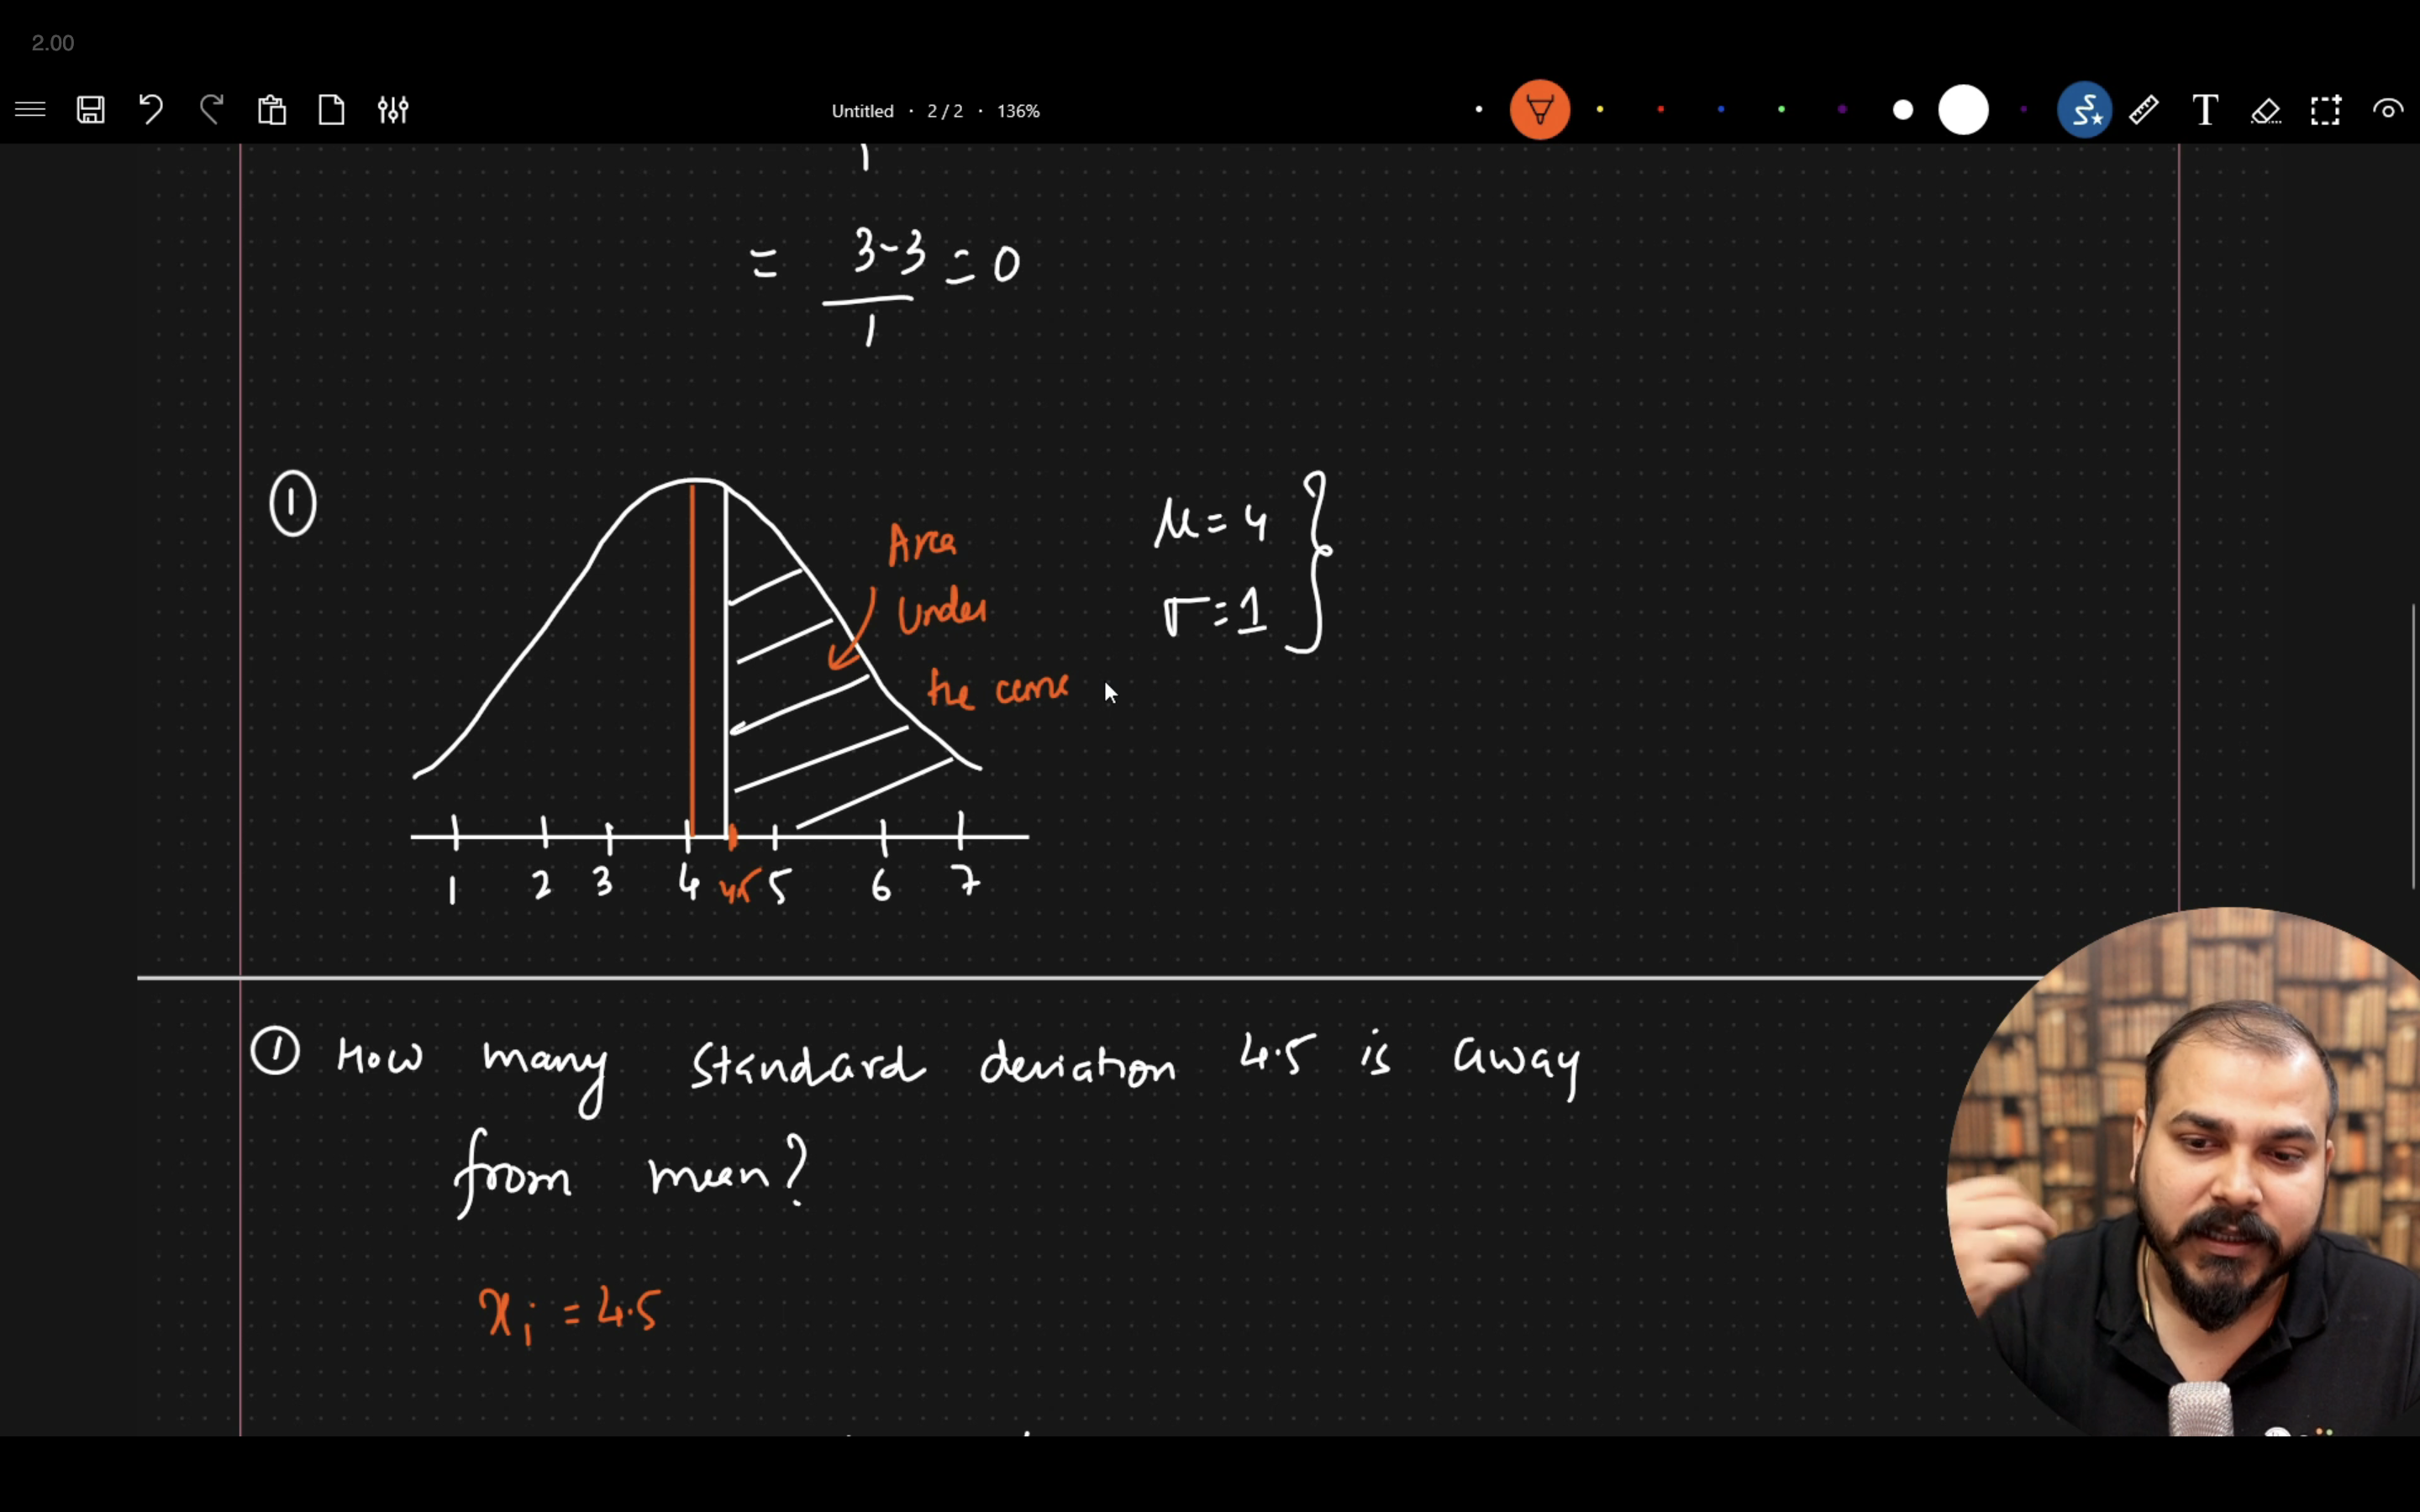 2.00
Untitled · 2 / 2 · 136%
T
1
= 3-3 = 0
1
①
Area
Under
the curve
μ = 4
σ = 1
1 2 3 4 4.5 5 6 7
① How many Standard deviation 4.5 is away
from mean?
xi = 4.5